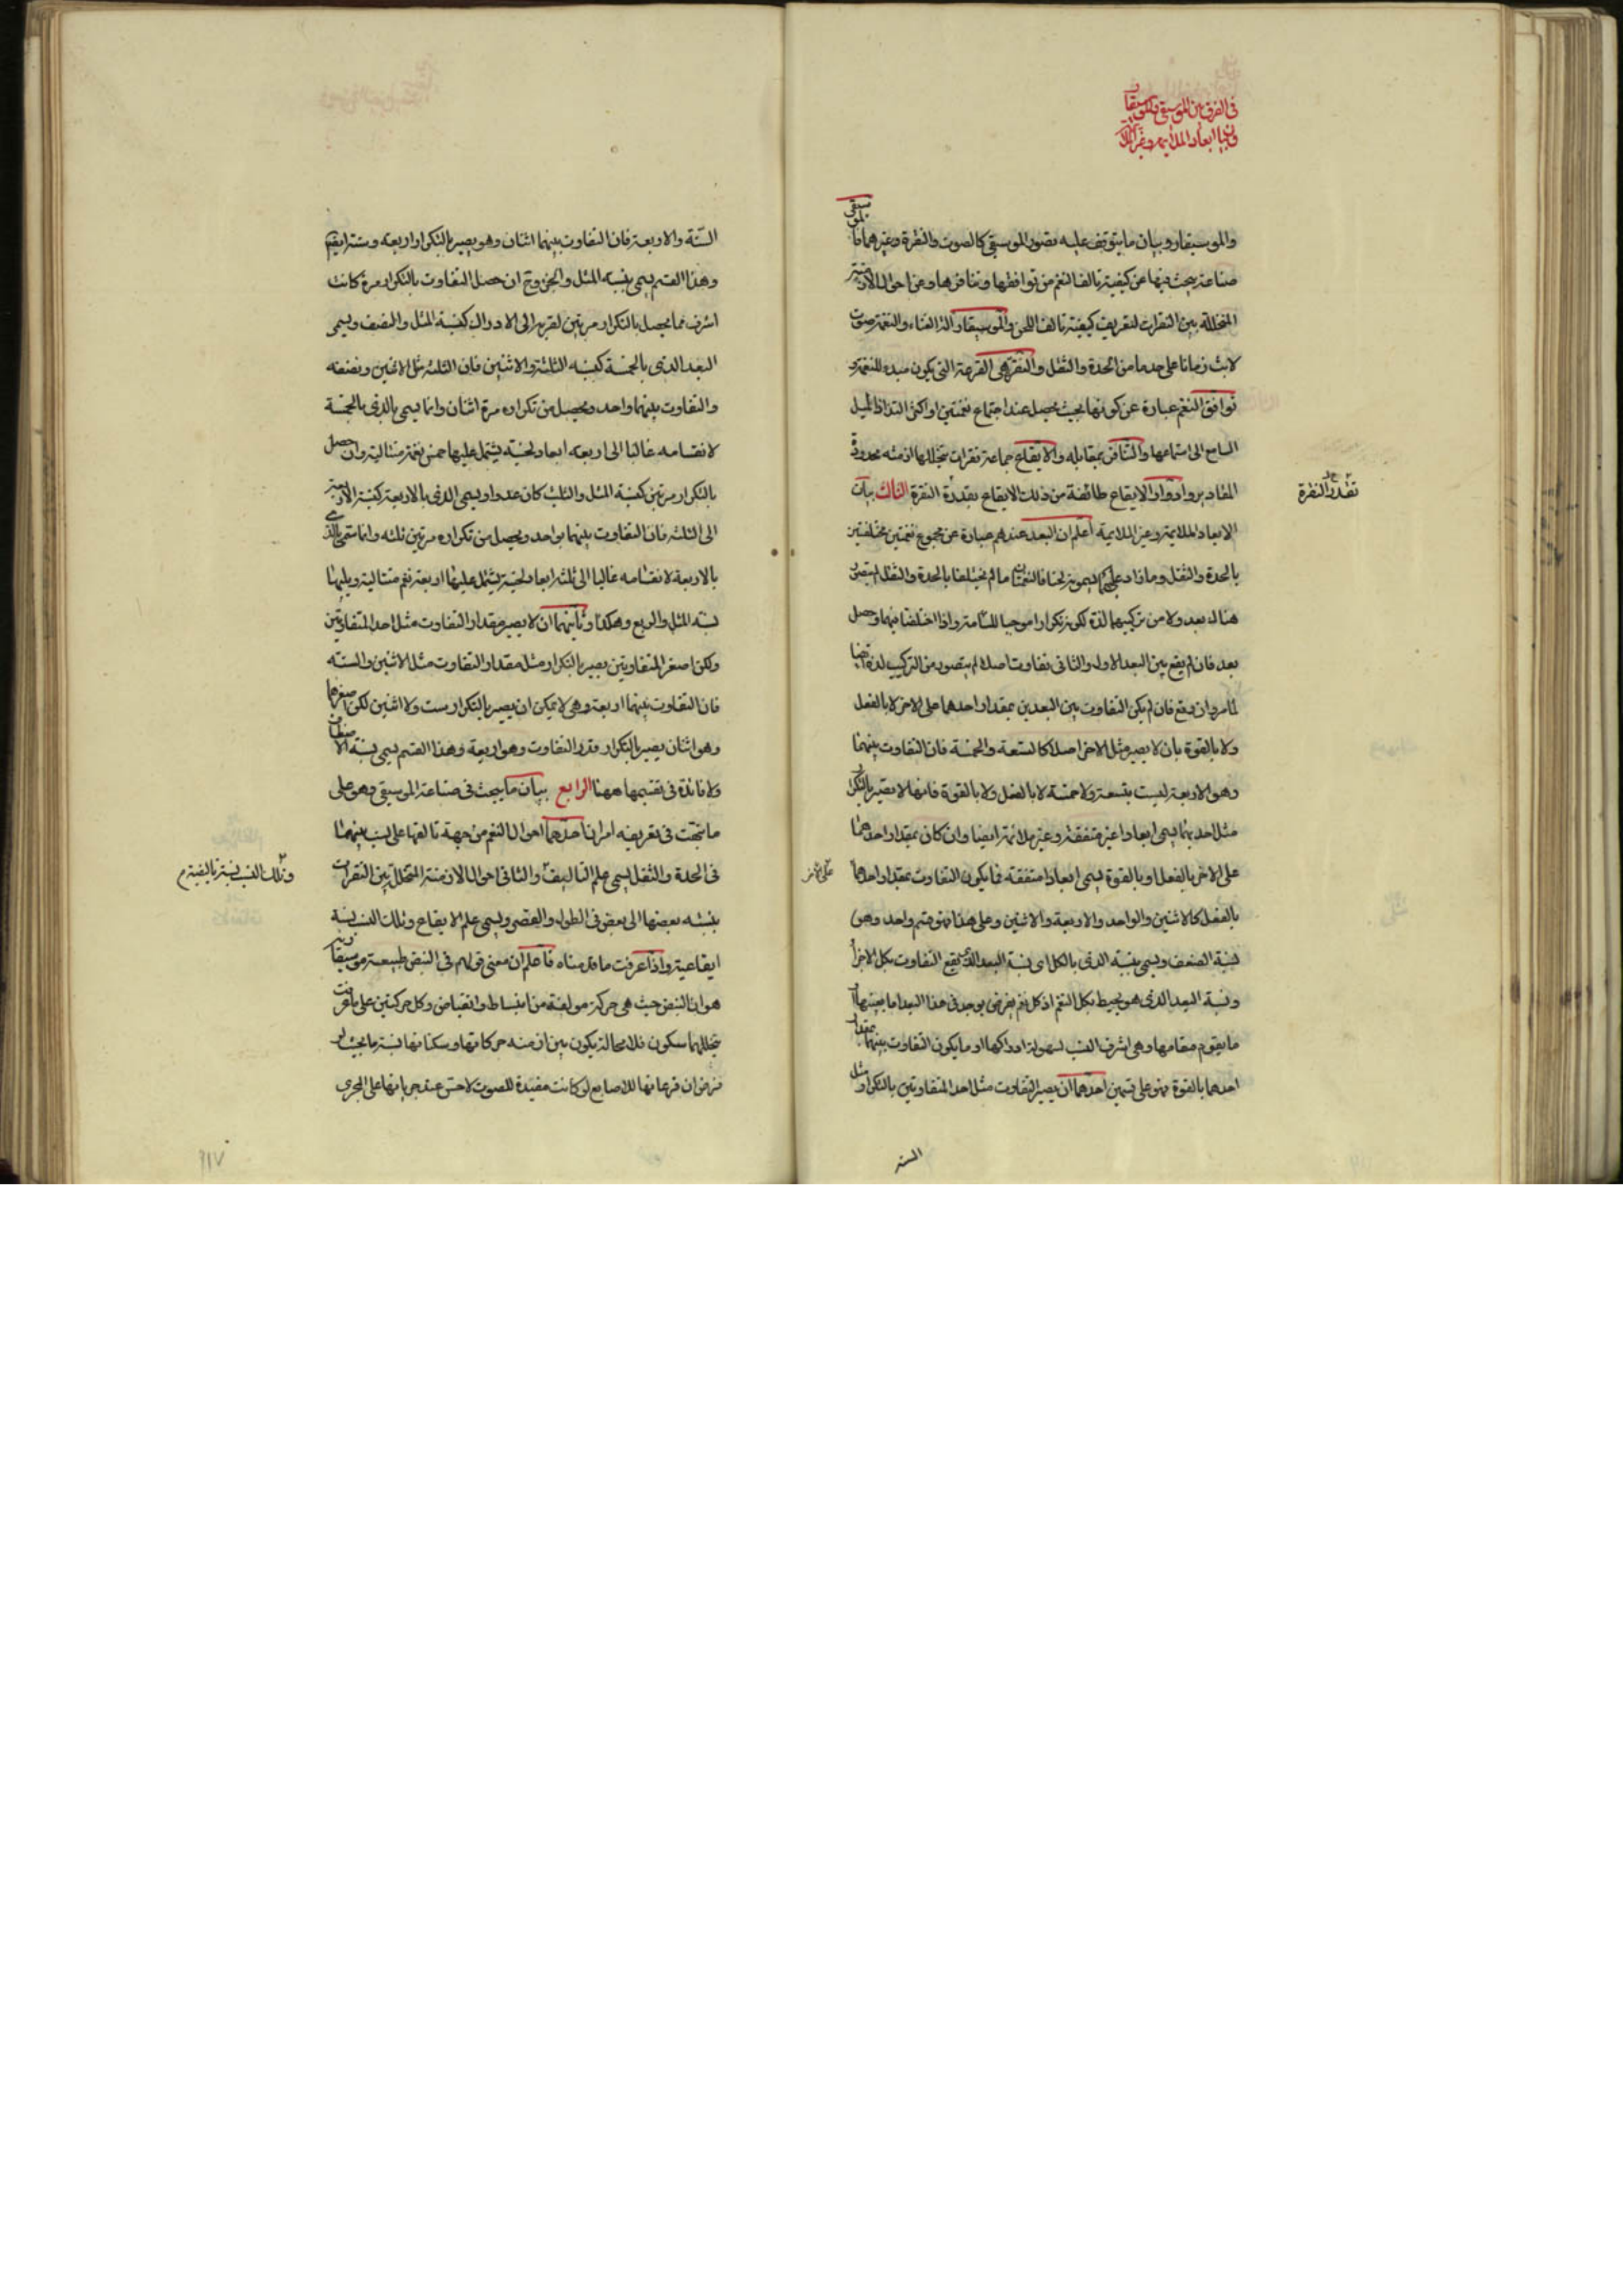 في الفرق بين الموسيقى والموسيقار
وبيان ابعاد الملايمة وغيرها
والموسيقار وبيان ما يتوقف عليه تصور الموسيقى كالصوت والنقرة وغيرهما فالموسيقى
صناعة يبحث فيها عن كيفية تالف النغم من توافقها وتنافرها وعن احوال الازمنة
المتخللة بين النقرات لتعريف كيفية تالف اللحن والموسيقار آلة الغناء والنغمة صوت
لابث زمانا على حد ما من الحدة والثقل والنقرة هي القرعة التي يكون مبدء للنغمة و
توافق النغم عبارة عن كونها بحيث يحصل عند اجتماع نغمتين او اكثر التذاذ لميل
السامع الى استماعها والتنافر بمقابله والايقاع جماعة نقرات يتخللها ازمنة محدودة
المقادير وادوار الايقاع طائفة من ذلك الايقاع بقدرة النقرة الثالث بيان
تقدر النقرة
الابعاد الملايمة وغير الملايمة اعلم ان البعد عندهم عبارة عن مجموع نغمتين مختلفتين
بالحدة والثقل وما زاد عليهما يسمونه لحنا فالنغمتان ما لم يختلفا بالحدة والثقل لم يتصور
هناك بعد ولا من تركيبهما لذة لكونه تكرارا موجبا للسآمة واذا اختلفا فيهما وحصل
بعد فان لم يقع بين البعد الاول والثاني تفاوت اصلا لم يتصور من التركيب لذة ايضا
لما مر وان يقع فان لم يكن التفاوت بين البعدين بمقدار احدهما على الاخر لا بالفعل
ولا بالقوة بان لا يصير مثل الاخر اصلا كالتسعة والخمسة فان التفاوت بينهما
وهو الاربعة ليست بتسعة ولا خمسة لا بالفعل ولا بالقوة فانها لا تصير بالتكرار
مثل احديهما يسمى ابعادا غير متفقة وغير ملائمة ايضا وان كان بمقدار احدهما
على الاخر بالفعل او بالقوة يسمى ابعادا متفقة فما يكون التفاوت بمقدار احدهما
بالفعل كالاثنين والواحد والاربعة والاثنين وعلى هذا فهو قسم واحد وهو
نسبة الضعف ويسمى بنسبة الذي بالكل اي نسبة البعد الذي يقع التفاوت بكل الاجزاء
ونسبة البعد الذي هو يحيط بكل النغم اذ كل نغم يفرض يوجد في هذا البعد اما بعينها او
ما يقوم مقامها وهي اشرف النسب لسهولة ادراكها او ما يكون التفاوت بينهما بمقدار
احدهما بالقوة فهو على قسمين احدهما ان يصير التفاوت مثل احد المتفاوتين بالتكرار مثل
الستة
الستة والاربعة فان التفاوت بينهما اثنان وهو يصير بالتكرار اربعة وستة ايضا
وهذا القسم يسمى بنسبة المثل والجزء وح ان حصل التفاوت بالتكرار مرة كانت
اشرف مما يحصل بالتكرار مرتين لقربه الى الادراك كنسبة المثل والنصف ويسمى
البعد الذي بالخمسة كنسبة الثلثة والاثنين فان الثلثة مثل الاثنين ونصفه
والتفاوت بينهما واحد ويحصل من تكراره مرة اثنان وانما يسمى بالذي بالخمسة
لانقسامه غالبا الى اربعة ابعاد لحنية يشتمل عليها خمس نغم متتالية وان حصل
بالتكرار مرتين كنسبة المثل والثلث كان عدوا ويسمى الذي بالاربعة كنسبة الاربعة
الى الثلثة فان التفاوت بينهما بواحد ويحصل من تكراره مرتين ثلثة وانما سمى بالذي
بالاربعة لانقسامه غالبا الى ثلثة ابعاد لحنية يشتمل عليها اربعة نغم متتالية ويليها
نسبة المثل والربع وهكذا وثانيهما ان لا يصير مقدار التفاوت مثل احد المتفاوتين
ولكن اصغر المتفاوتين يصير بالتكرار مثل مقدار التفاوت مثل الاثنين والستة
فان التفاوت بينهما اربعة وهي لا يمكن ان يصير بالتكرار ست ولا اثنين لكن اصغرهما
وهو اثنان يصير بالتكرار قدر التفاوت وهو اربعة وهذا القسم يسمى بنسبة الاضعاف
ولا فائدة في تقسيمها ههنا الرابع بيان ما يبحث في صناعة الموسيقى وهو على
ما تحققت في تعريفه امران احدهما احوال النغم من جهة تالفها على نسب بينهما
في الحدة والثقل يسمى علم التاليف والثاني احوال الازمنة المتخللة بين النقرات
وتلك النسب نسبة تاليفية م
بنسبة بعضها الى بعض في الطول والقصر ويسمى علم الايقاع وتلك النسب نسبة
ايقاعية واذا عرفت ما قدمناه فاعلم ان معنى قولهم في النبض طبيعة موسيقارية
هو ان النبض حيث هي حركة مولفة من انبساط وانقباض وكل حركتين على ما عرفت
يتخللهما سكون فلا محالة يكون بين ازمنة حركاتها وسكناتها نسبة ما بحيث لو
فرض ان قرعاتها للاصابع لو كانت مفيدة للصوت لاحس عند جريانها على المجرى